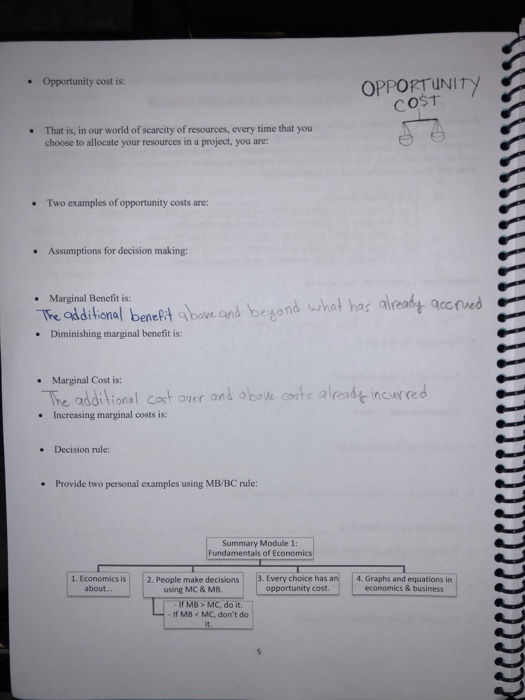 • Opportunity cost is:
OPPORTUNITY
COST
• That is, in our world of scarcity of resources, every time that you
choose to allocate your resources in a project, you are:
• Two examples of opportunity costs are:
• Assumptions for decision making:
• Marginal Benefit is:
The additional benefit above and beyond what has already accrued
• Diminishing marginal benefit is:
• Marginal Cost is:
The additional cost over and above costs already incurred
• Increasing marginal costs is:
• Decision rule:
• Provide two personal examples using MB/BC rule:
Summary Module 1:
Fundamentals of Economics
1. Economics is
about...
2. People make decisions
using MC & MB.
- If MB > MC, do it.
- If MB < MC, don't do
it.
3. Every choice has an
opportunity cost.
4. Graphs and equations in
economics & business
5